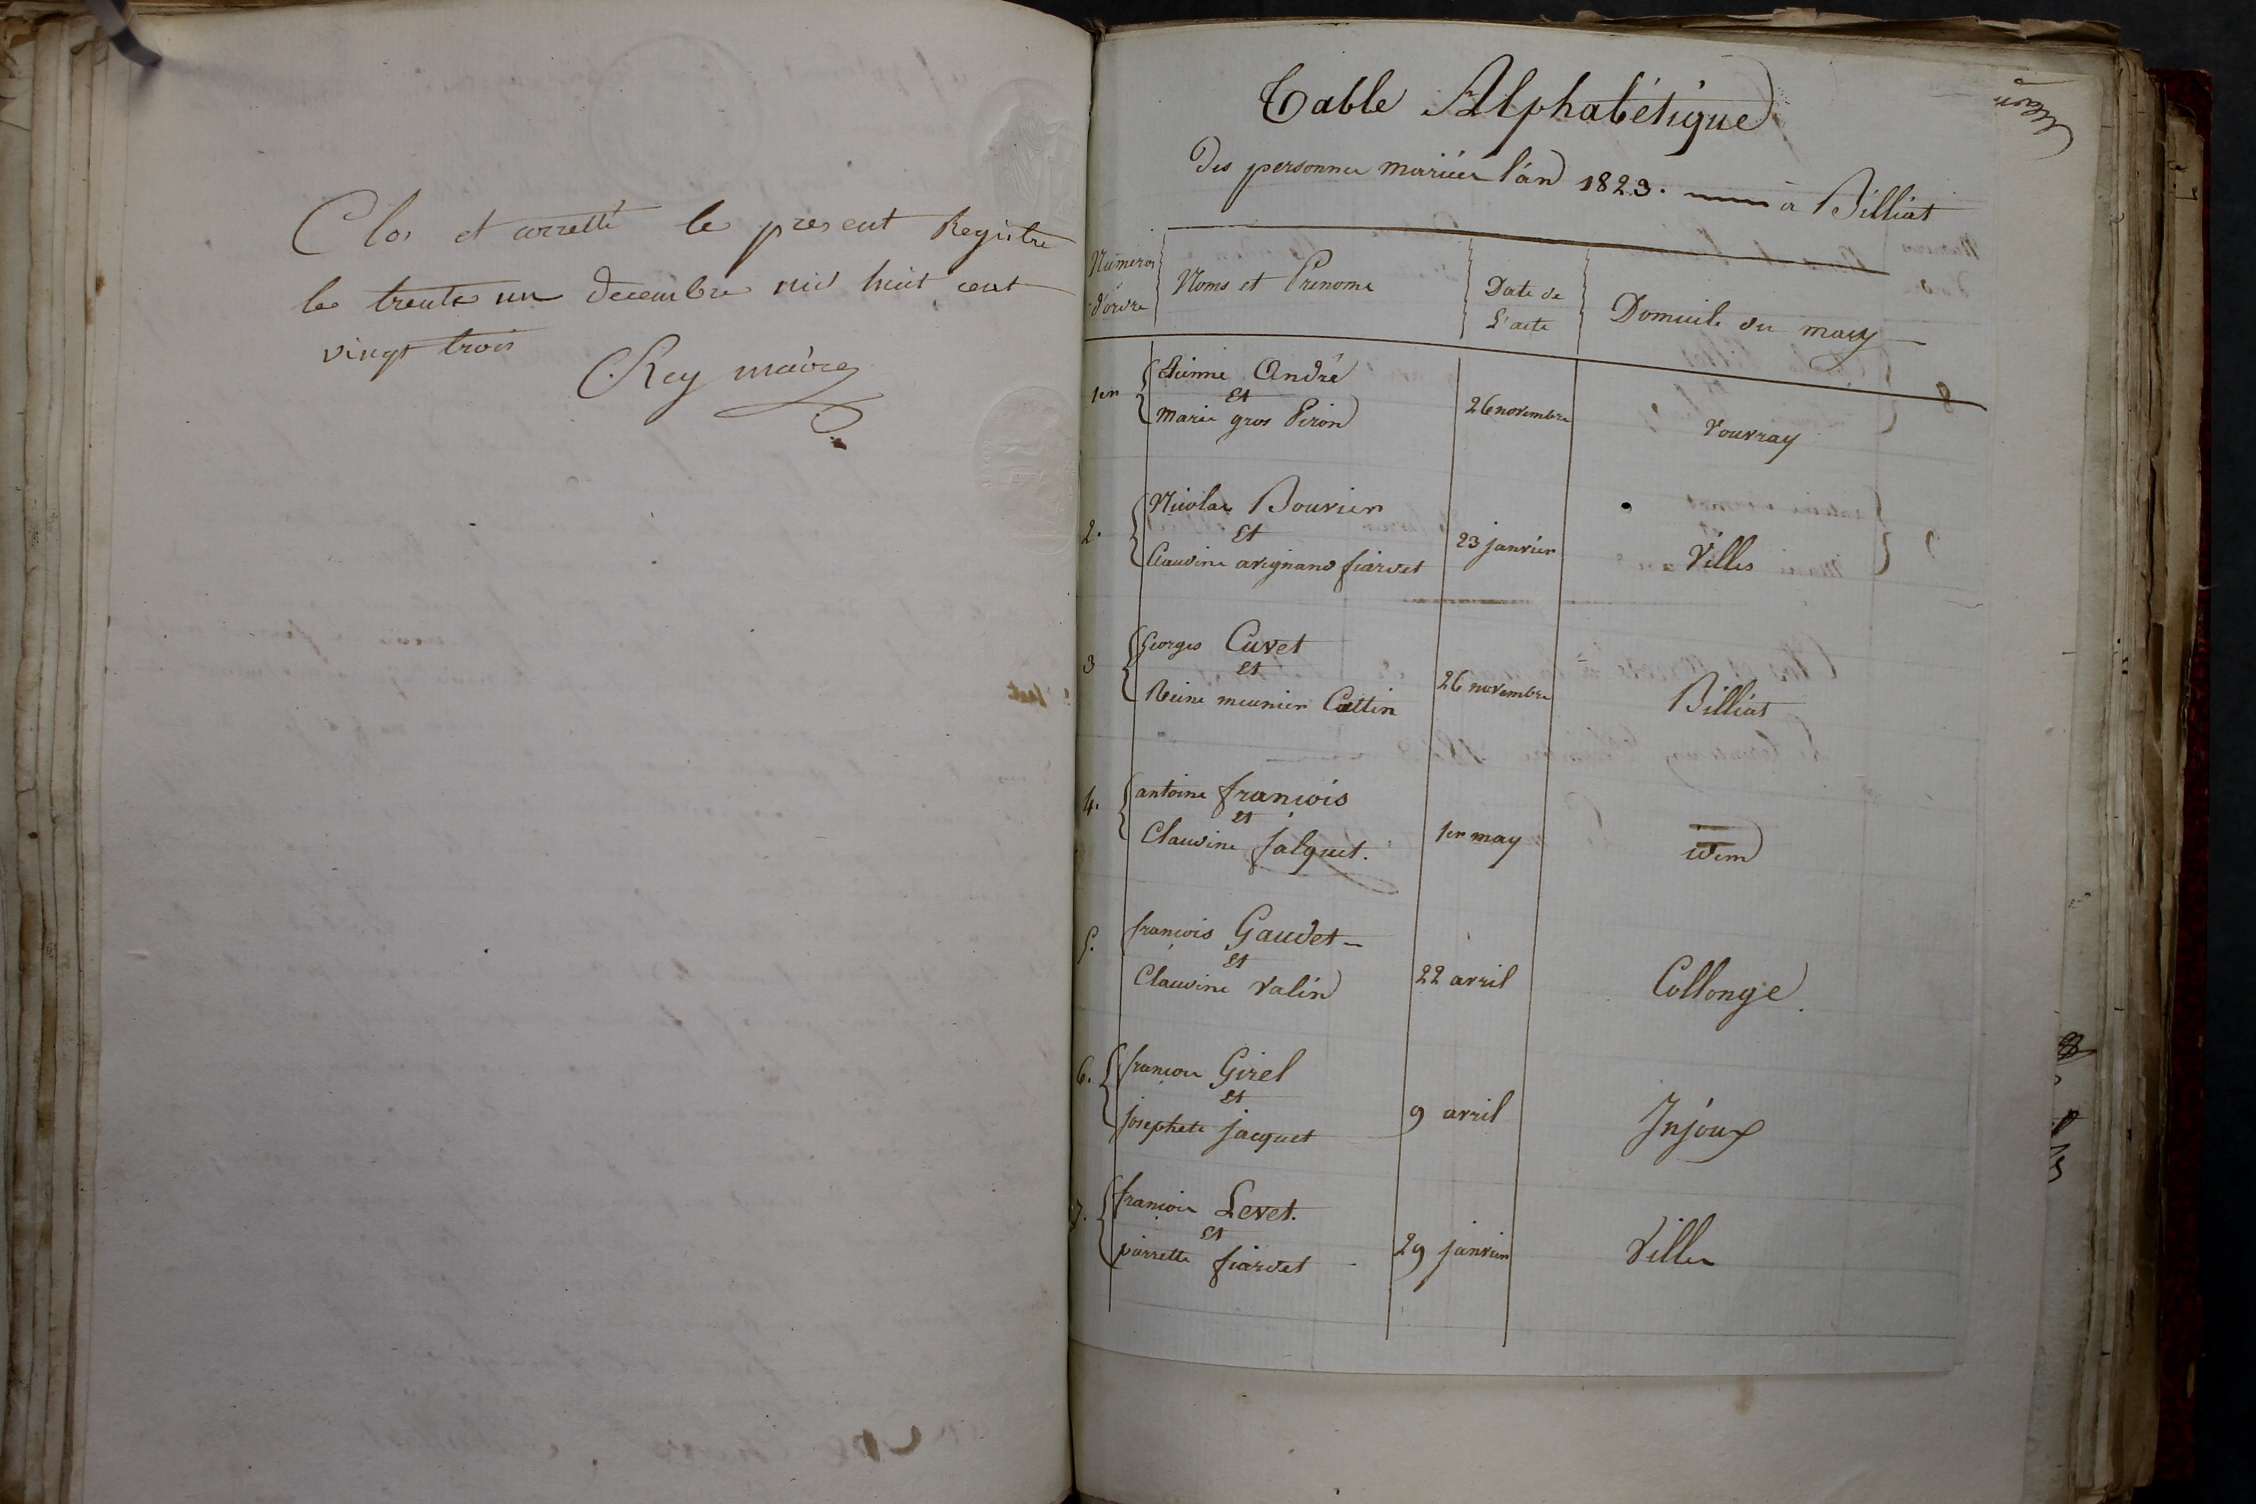 Clos et arretté le present Registre
le trente un decembre mil huit cent
vingt trois
Rey maire
Table Alphabétique
Des personnes mariées l'an 1823. à Billiat
Numeros d'ordre
Noms et Prenoms
Date de L'acte
Domicile du mary
1er
Etienne André
et
Marie gros Piron
26 novembre
Vouvray
2.
Nicolas Bouvier
et
Claudine avignand fiardet
23 janvier
Villes
3
Georges Cuvet
et
Reine meunier Cattin
26 novembre
Billiat
4.
antoine françois
et
Claudine falquet.
1er may
idem
5.
françois Gaudet
et
Claudine Valin
22 avril
Collonge
6.
françois Girel
et
josephete jacquet
9 avril
Injoux
7.
françois Levet.
et
pierrette fiardet
29 janvier
Villes